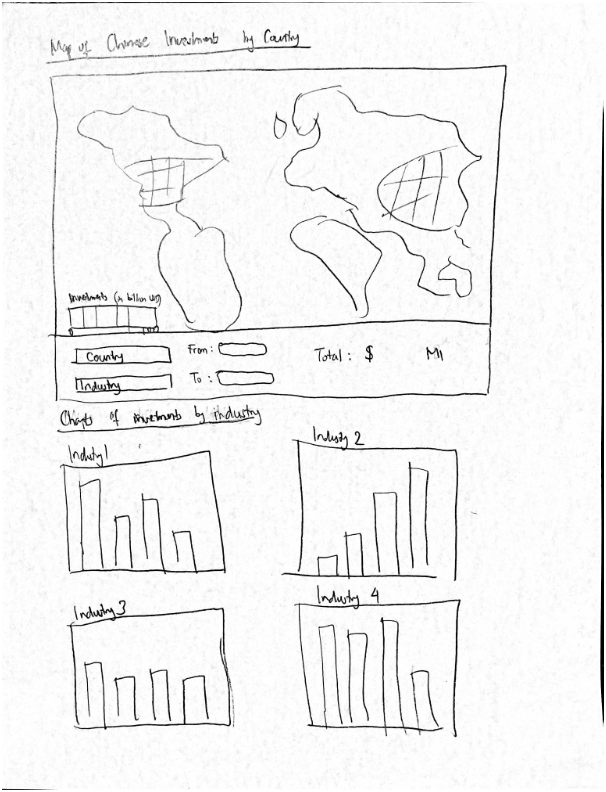 Map of Chinese Investments by Country
Investments (in billion USD)
Country
From :
Total : $ Mil
Industry
To :
Charts of investments by industry
Industry 1
Industry 2
Industry 3
Industry 4